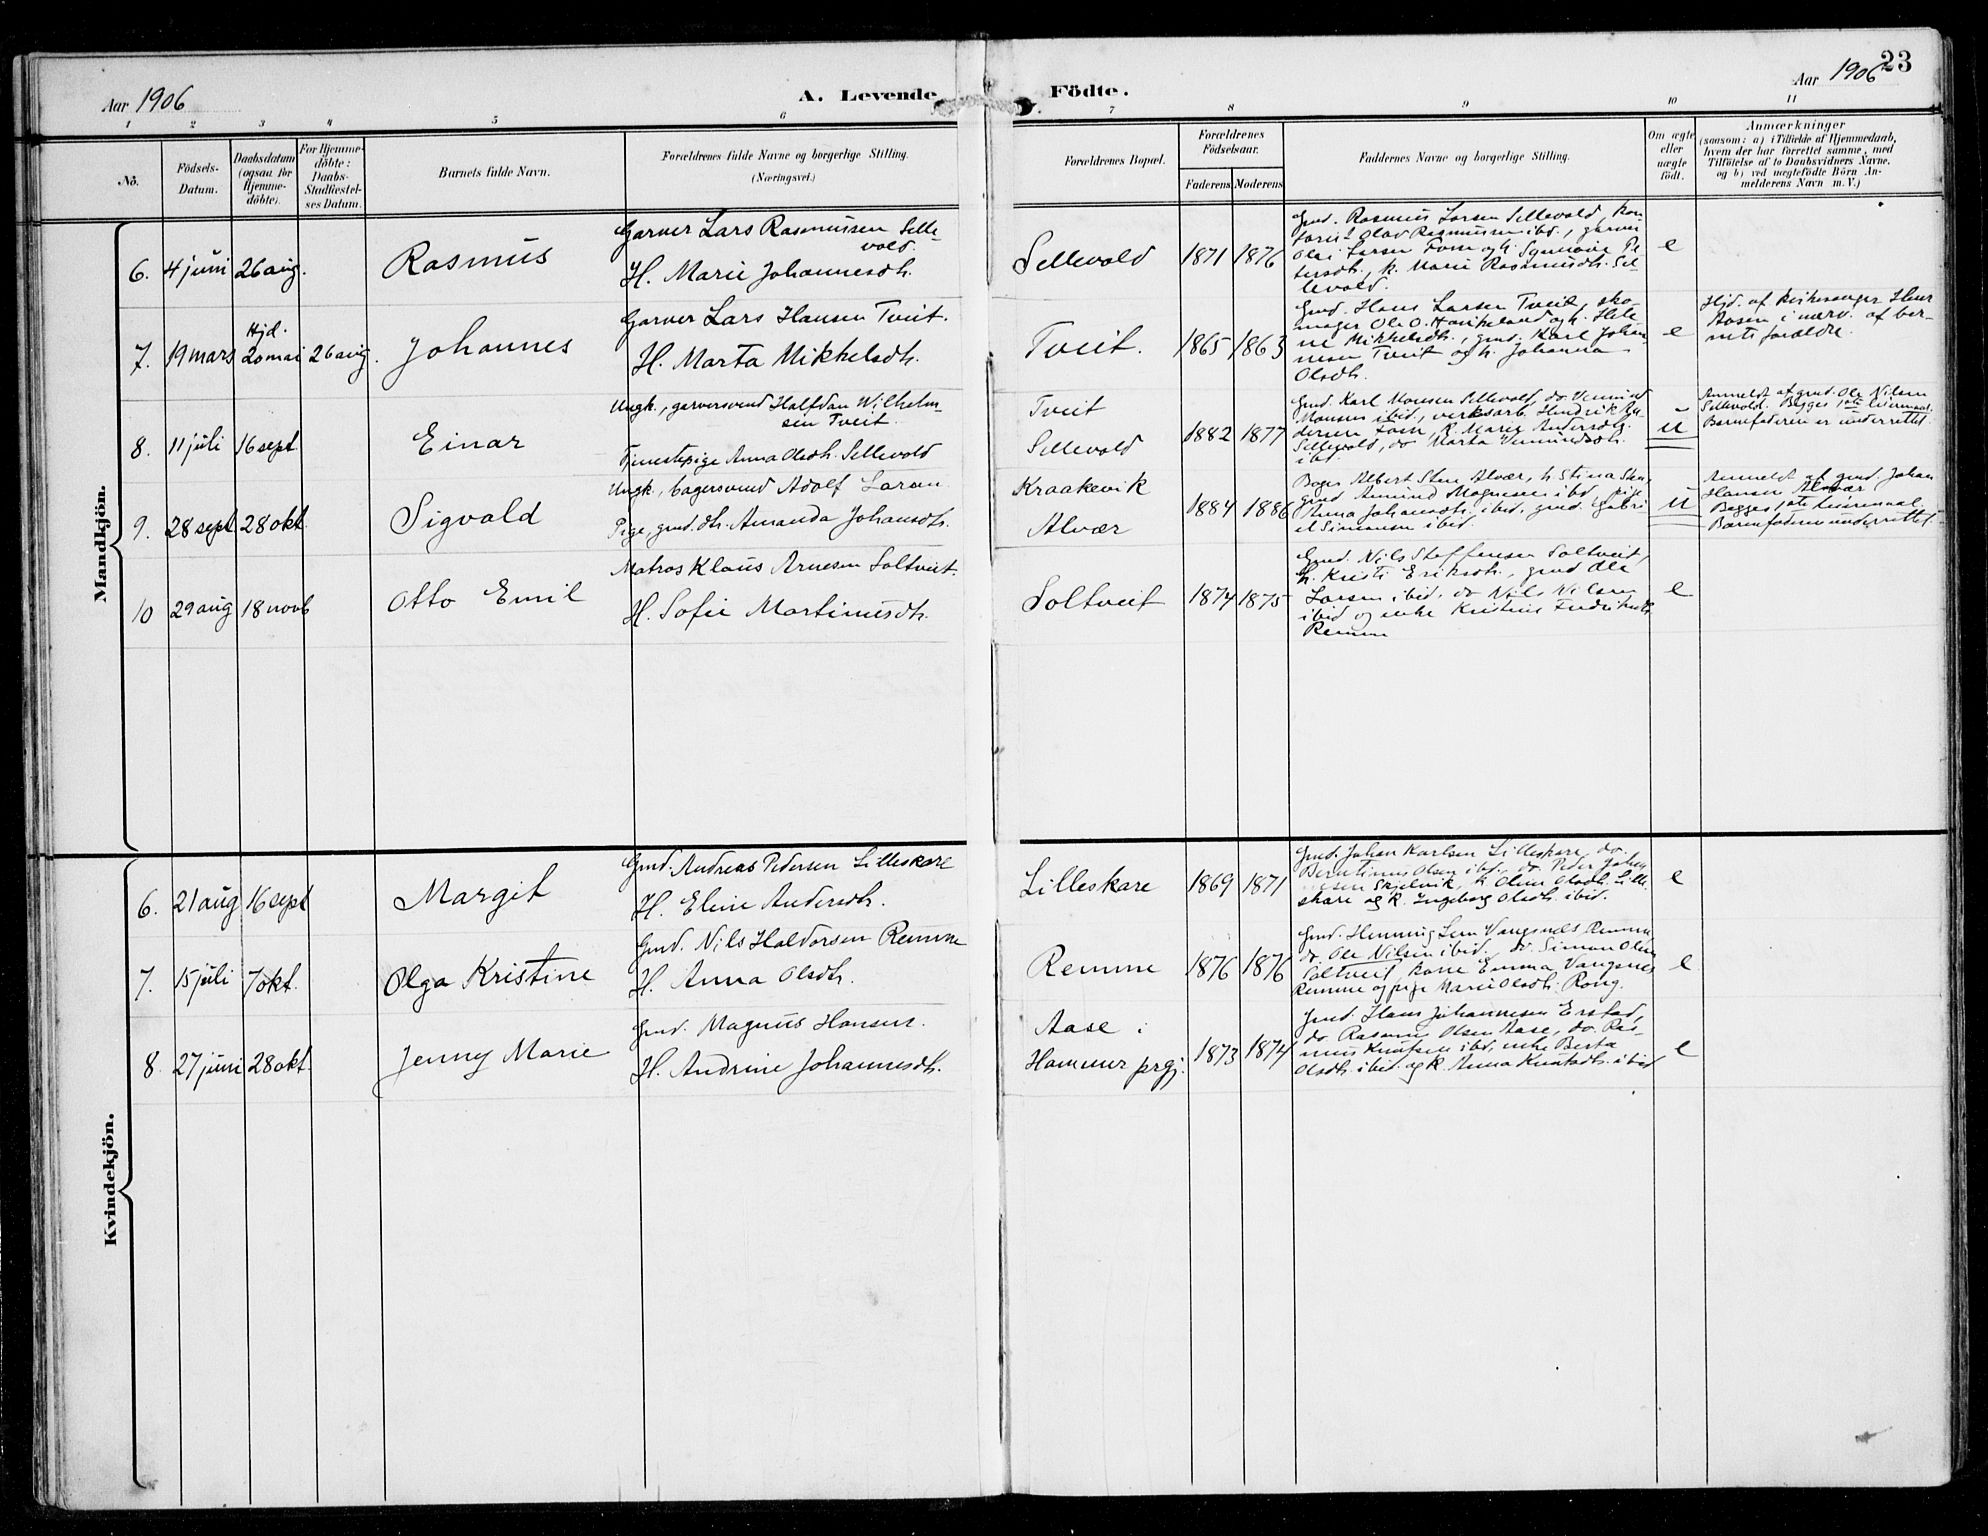 Aar 1906
A. Levende
Födte.
Aar 1906
23
1 2 3 4 5 6 7 8 9 10 11
No.
Födsels-
Datum.
Daabsdatum
(ogsaa for
Hjemme-
döbte).
For Hjemme-
döbte:
Daabs-
Stadfæstel-
ses Datum.
Barnets fulde Navn.
Forældrenes fulde Navne og borgerlige Stilling.
(Næringsvei.)
Forældrenes Bopæl.
Forældrenes
Födselsaar.
Faderens
Moderens
Faddernes Navne og borgerlige Stilling.
Om ægte
eller
uægte
födt.
Anmærkninger
(saasom: a) i Tilfælde af Hjemmedaab,
hvem der har forrettet samme, med
Tilföielse af to Daabsvidners Navne,
og b) ved uægtefödte Börn An-
melderens Navn m. V.)
Mandkjön.
6. 4 juni 26 aug.
Rasmus
Garver Lars Rasmussen Selle-
vold.
H. Marie Johannesdh.
Sellevold
1871 1876
Gmd. Rasmus Larsen Sellevold, kon-
torist Olav Rasmussen ibd., garver
Olai Larsen Tom og h. Synneve Pe-
tersdh., k. Marie Rasmusdh. Sel-
levold.
e
7. 19 mars
Hjd.
20 mai 26 aug.
Johannes
Garver Lars Hansen Tveit.
H. Marta Mikkelsdh.
Tveit.
1865 1863
Gmd. Hans Larsen Tveit, sko-
mager Ole O. Haukeland og h. Hele-
ne Mikkelsdh., gmd. Karl Johan-
nesen Tveit og h. Johanna
Olsdh.
e
Hjd. af kirkesanger
Rosen i nærv. af bar-
nets forældre.
8. 11 juli 16 sept.
Einar
Ungk., garversvend Halfdan Wilhelm-
sen Tveit.
Tjenestepige Anna Olsdh. Sellevold
Tveit
Sellevold
1882 1877
Gmd. Karl Monsen Sellevold, do Vemund
Monsen ibid., verksarb. Hendrik An-
dersen Tom, k. Marie Andersdh.
Sellevold, do Marta Vemundsdh.
ibd.
u
Anmeldt af gmd. Ole Nilsen
Sellevold. Begges 1ste leiermaal.
Barnefaderen er underrettet.
9. 28 sept 28 okt.
Sigvald
Ungk., bagersvend Adolf Larsen
Pige, gmd.dh. Amanda Johansdh.
Kraakevik
Alvær
1884 1886
Bager Albert Steen Alvær, h. Stina Steen,
gmd Amund Magnesen ibd, pige
Anna Johansdh. ibid. gmd. Gabri
el Simonsen ibid.
u
Anmeldt af gmd. Johan
Hansen Alvær
Begges 1ste leiermaal
Barnefaderen underrettet.
10 29 aug 18 novb
Otto Emil
Matros Klaus Arnesen Soltveit.
H. Sofie Martinusdh.
Soltveit
1874 1875
Gmd. Nils Steffensen Soltveit,
h. Kristi Eriksdh., gmd Ole
Larsen ibid. do Nils Nilsen
ibid og enke Kristine Fredriksdh.
Remme
e
Kvindekjön.
6. 21 aug 16 sept
Margit
Gmd. Andreas Pedersen Lilleskare
H. Eline Andersdh.
Lilleskare
1869 1871
Gmd. Johan Karlsen Lilleskare, do.
Berntinus Olsen ibd., do. Peder Johan-
nesen Skjelvik, k. Oline Olsdh. Lille-
skare og k. Ingeborg Olsdh. ibid.
e
7. 15 juli 7 okt.
Olga Kristine
Gmd. Nils Haldorsen Remme
H. Anna Olsdh.
Remme
1876 1876
Gmd. Henning Lem Vangsnes Remme
do. Ole Nilsen ibid., do. Simon Olsen
Soltveit, kone Emma Vangsnes
Remme og pige Marie Olsdh. Rong.
e
8. 27 juni 28 okt.
Jenny Marie
Gmd. Magnus Hansen.
H. Andrine Johannesdh.
Aase i
Hammer prgj.
1873 1874
Gmd. Hans Johannesen Erstad,
do Rasmus Olsen Aase, do. Ras-
mus Knutsen ibd., enke Berta
Olsdh. ibid. og k. Anna Knutsdh. ibid.
e